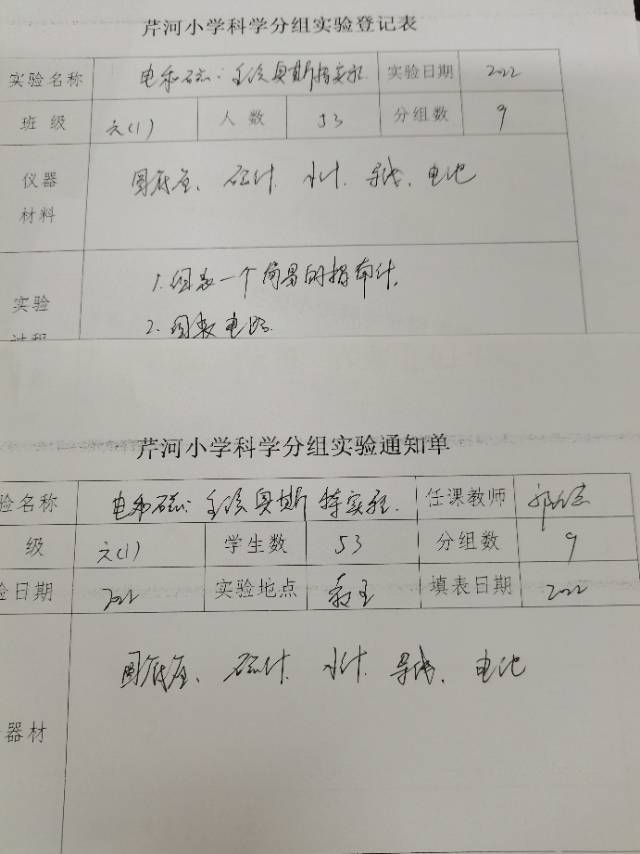 芹河小学科学分组实验登记表
实验名称 电和磁:重演奥斯特实验 实验日期 2022
班级 六(1) 人数 53 分组数 9
仪器 圆底座、磁针、支针、导线、电池
材料
1.组装一个简易的指南针。
实验
2.组装电路
过程
芹河小学科学分组实验通知单
验名称 电和磁:重演奥斯特实验. 任课教师
级 六(1) 学生数 53 分组数 9
验日期 2022 实验地点 教室 填表日期 2022
圆底座、磁针、支针、导线、电池
器材